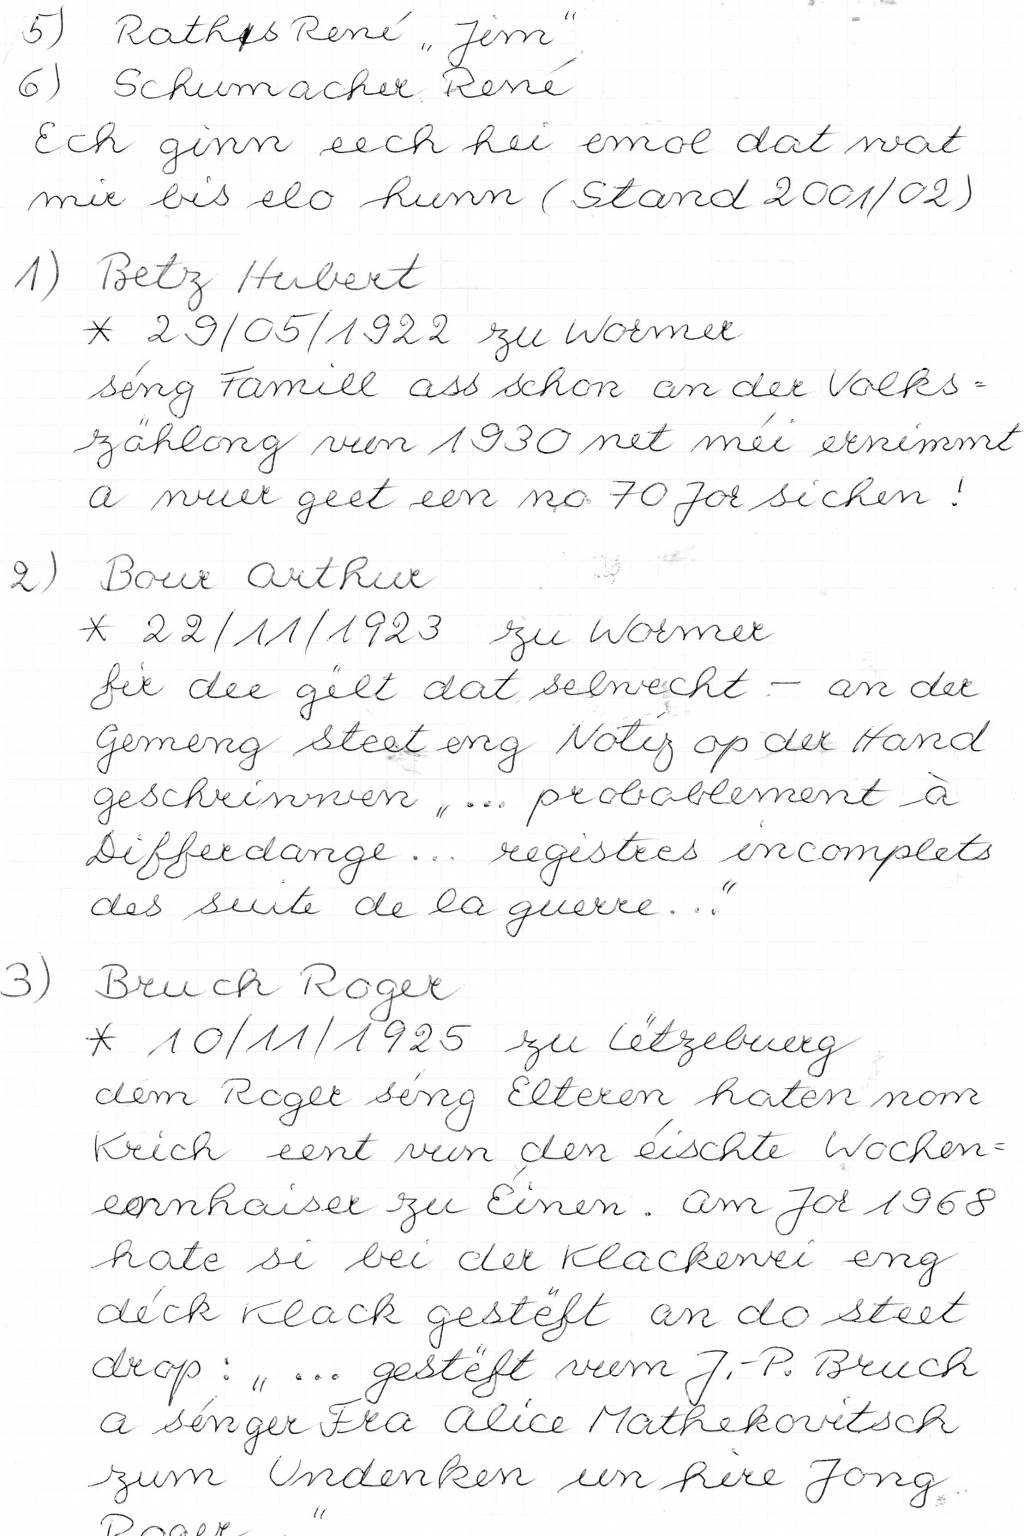 5) Rathis René „Jim“
6) Schumacher René
Ech ginn eech hei emol dat wat
mir bis elo hunn (Stand 2001/02)
1) Betz Hubert
* 29/05/1922 zu Wormer
séng Famill ass schon an der Volks=
zählong vun 1930 net méi ernimmt
a wuer geet een no 70 Jor sichen !
2) Bour Arthur
* 22/11/1923 zu Wormer
fir dee gëlt dat selwecht – an der
Gemeng steet eng Notiz op der Hand
geschriwwen „... probablement à
Differdange ... registres incomplets
des suite de la guerre ...“
3) Bruch Roger
* 10/11/1925 zu Lëtzebuerg
dem Roger séng Elteren haten nom
Krich eent vun den éischte Wochen=
ennhaiser zu Éinen. Am Jor 1968
hate si bei der Klackewei eng
déck Klack gestëft an do steet
drop: „... gestëft vum J.-P. Bruch
a sénger Fra Alice Mathekovitsch
zum Undenken un hire Jong
Roger ...“